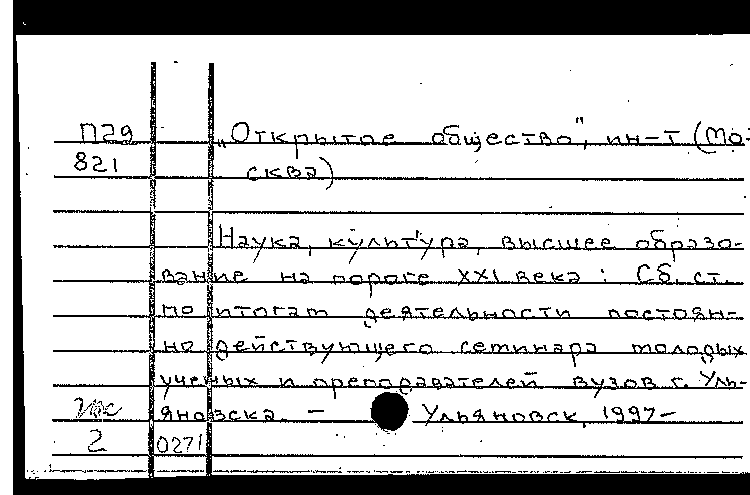 П29 „Открытое общество", ин-т (Мо-
821 сква)
Наука, культура, высшее образо-
вание на пороге XXI века : Сб. ст.
по итогам деятельности постоян-
но действующего семинара молодых
ученых и преподавателей вузов г. Уль-
яновска. – Ульяновск, 1997–
2 0271